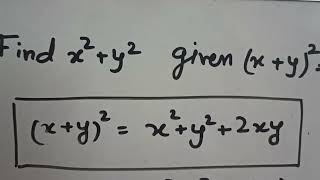 Find x² + y² given (x + y)² =
(x + y)² = x² + y² + 2xy